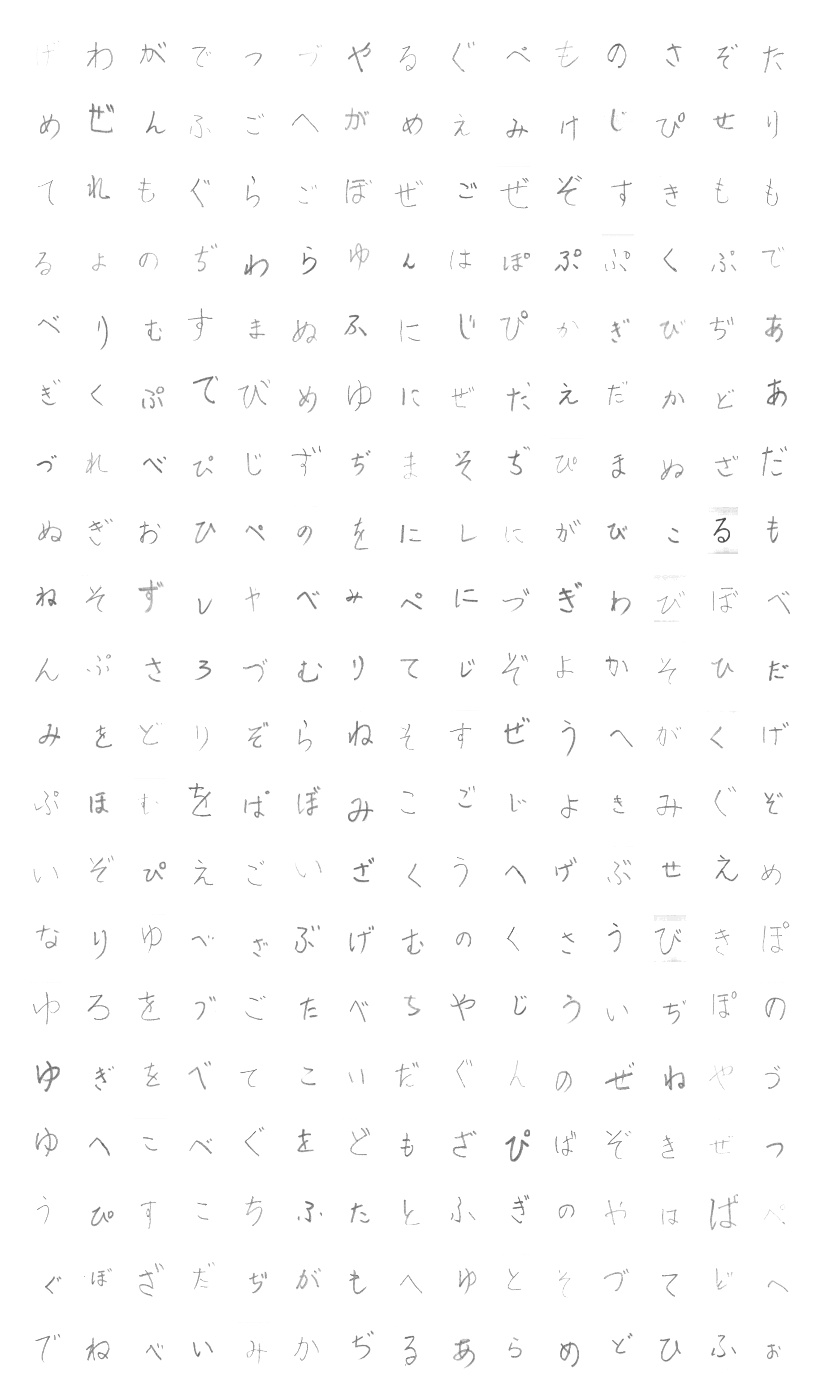 げわがでっづやるぐぺものさぞた
めぜんふごへがめえみけじぴせり
てれもぐらごぼぜごぜぞすきもも
るよのぢわらゆんはぽぷぷくぷで
べりむすまぬふにじぴかぎびぢあ
ぎくぷでびめゆにぜだえだかどあ
づれべぴじずぢまそぢぴまぬざだ
ぬぎおひぺのをにしにがびこるも
ねそずしやべみぺにづぎわびぼべ
んぷさろづむりてじぞよかそひだ
みをどりぞらねそすぜうへがくげ
ぷほむをぱぼみこごじよきみぐぞ
いぞぴえごいざくうへげぶせえめ
なりゆべざぶげむのくさうびきぽ
ゆろをづごたべちやじういぢぽの
ゆぎをべてこいだぐんのぜねやづ
ゆへこべぐをどもざぴばぞきぜつ
うぴすこちふたとふぎのやはぱぺ
ぐぼざだぢがもへゆとそづてどへ
でねべいみかぢるあらめどひふお